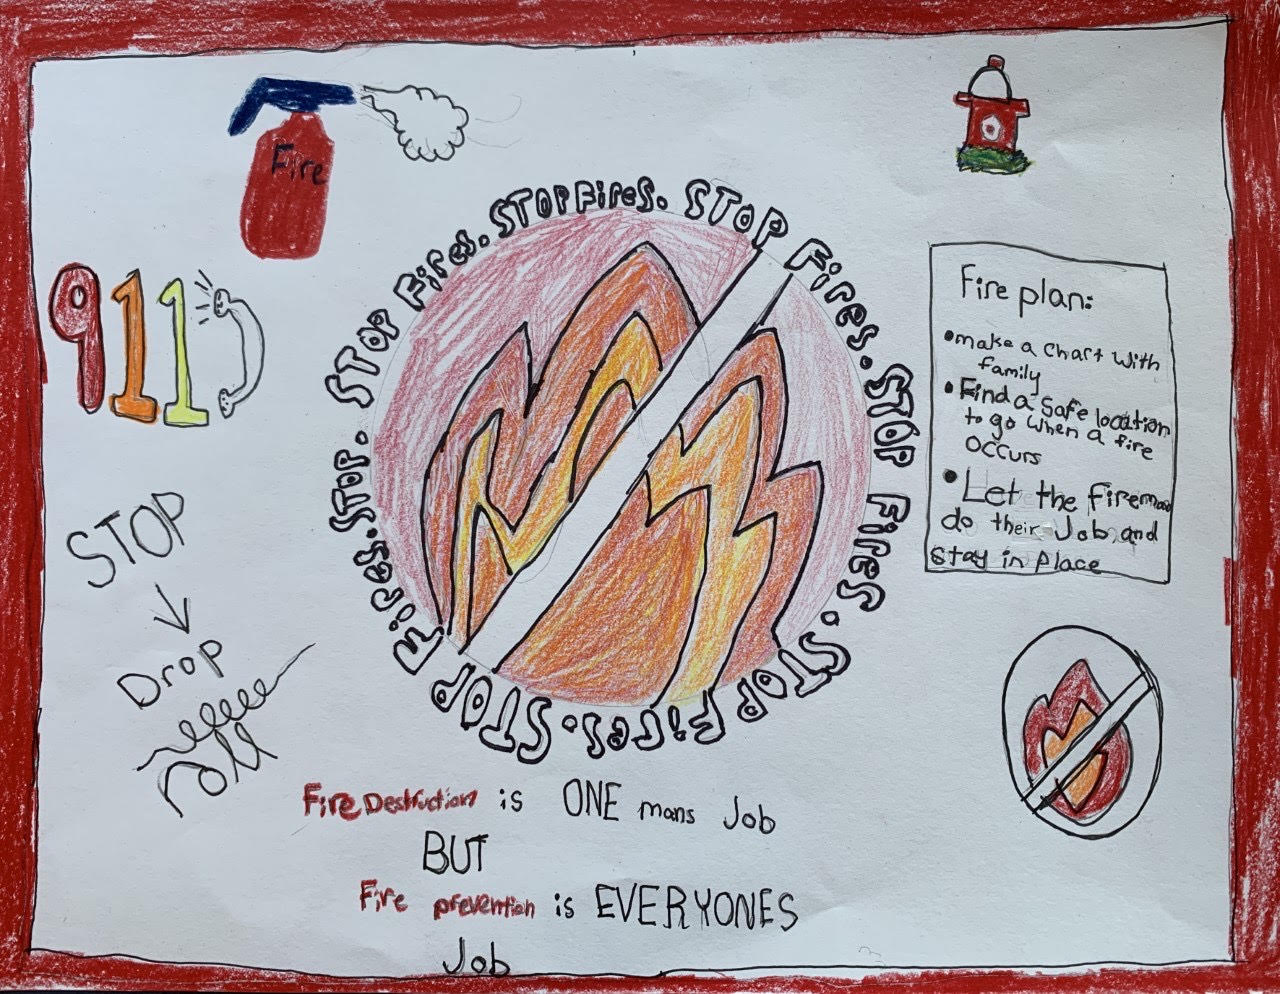 Fire
911
STOP
Drop
roll
STOP Fires. STOP Fires. STOP Fires. STOP Fires. STOP Fires. STOP Fires. STOP.
Fire plan:
• make a chart with
family
• Find a safe location
to go when a fire
occurs
• Let the fireman
do their Job and
stay in place
Fire Destruction is ONE mans Job
BUT
Fire prevention is EVERYONES
Job